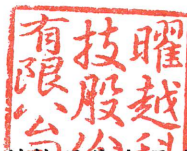 曜越科
技股份
有限公